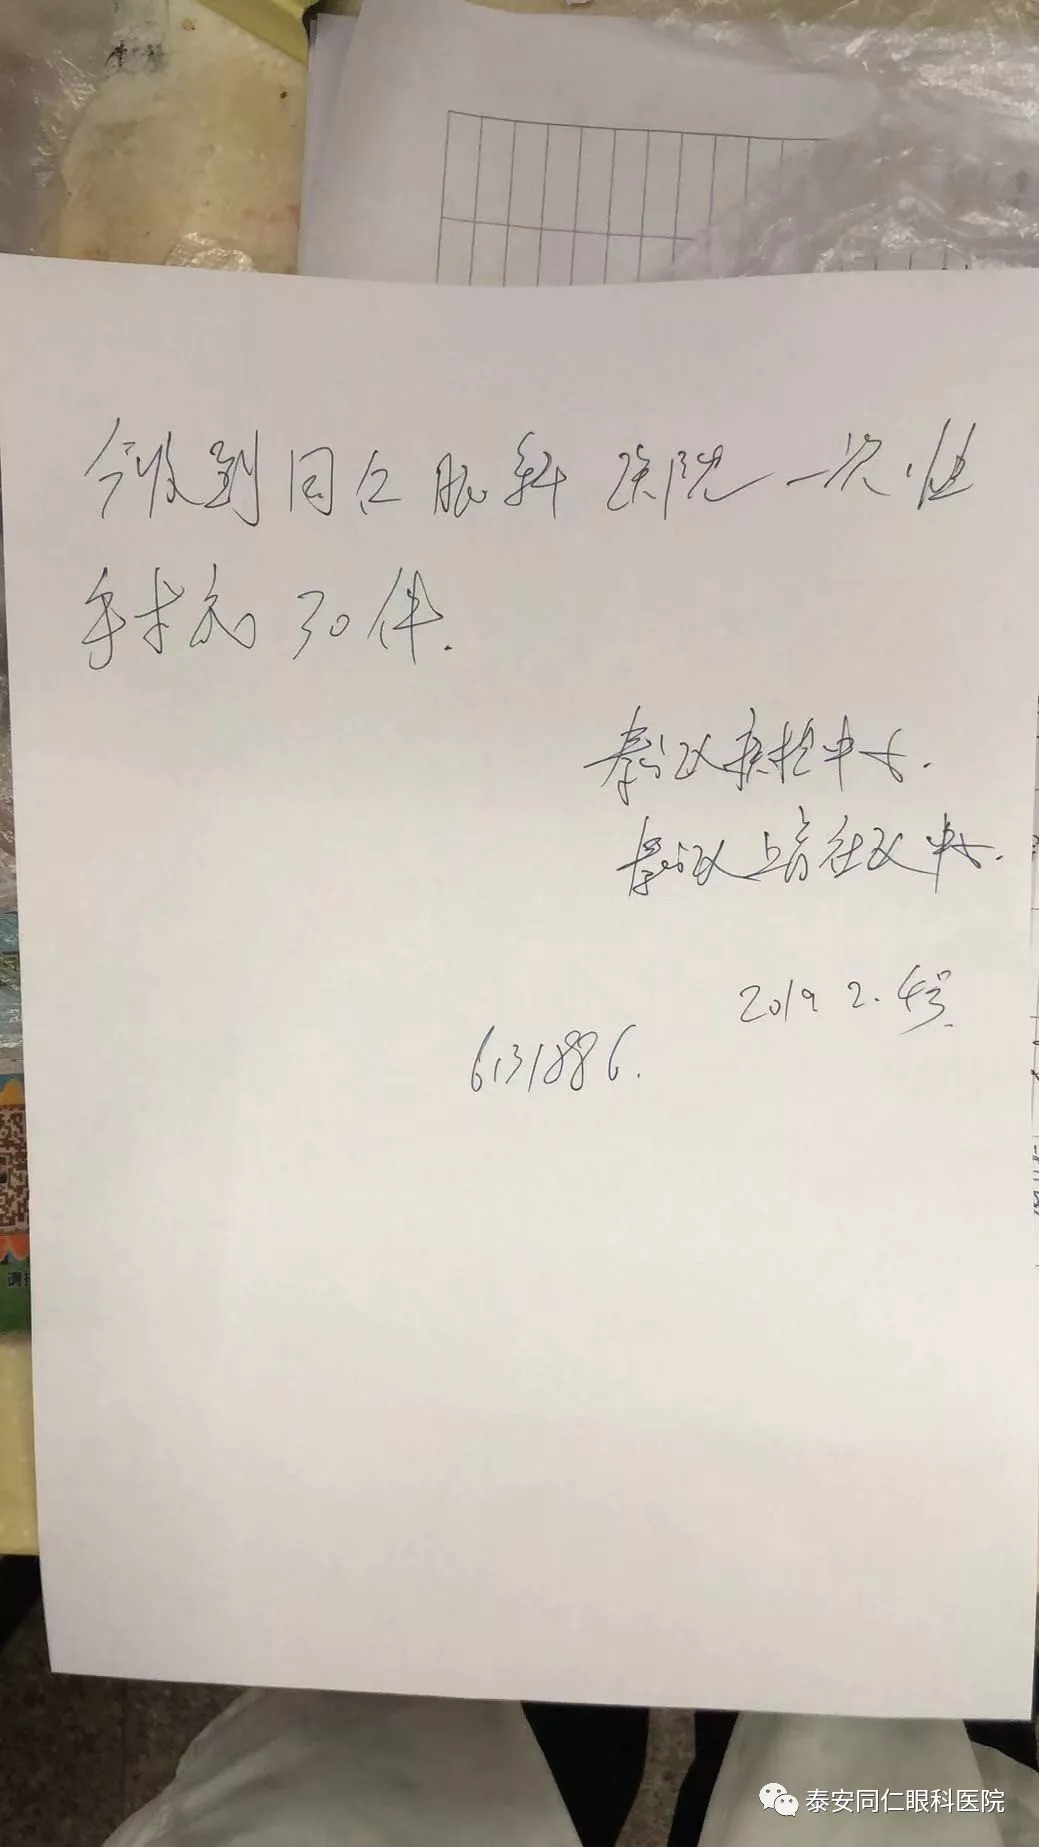 今收到同仁眼科医院一次性
手术衣 30件.
泰山区疾控中心.
泰山区上高社区中心.
2019 2. 4号.
6131886.
请扫
泰安同仁眼科医院